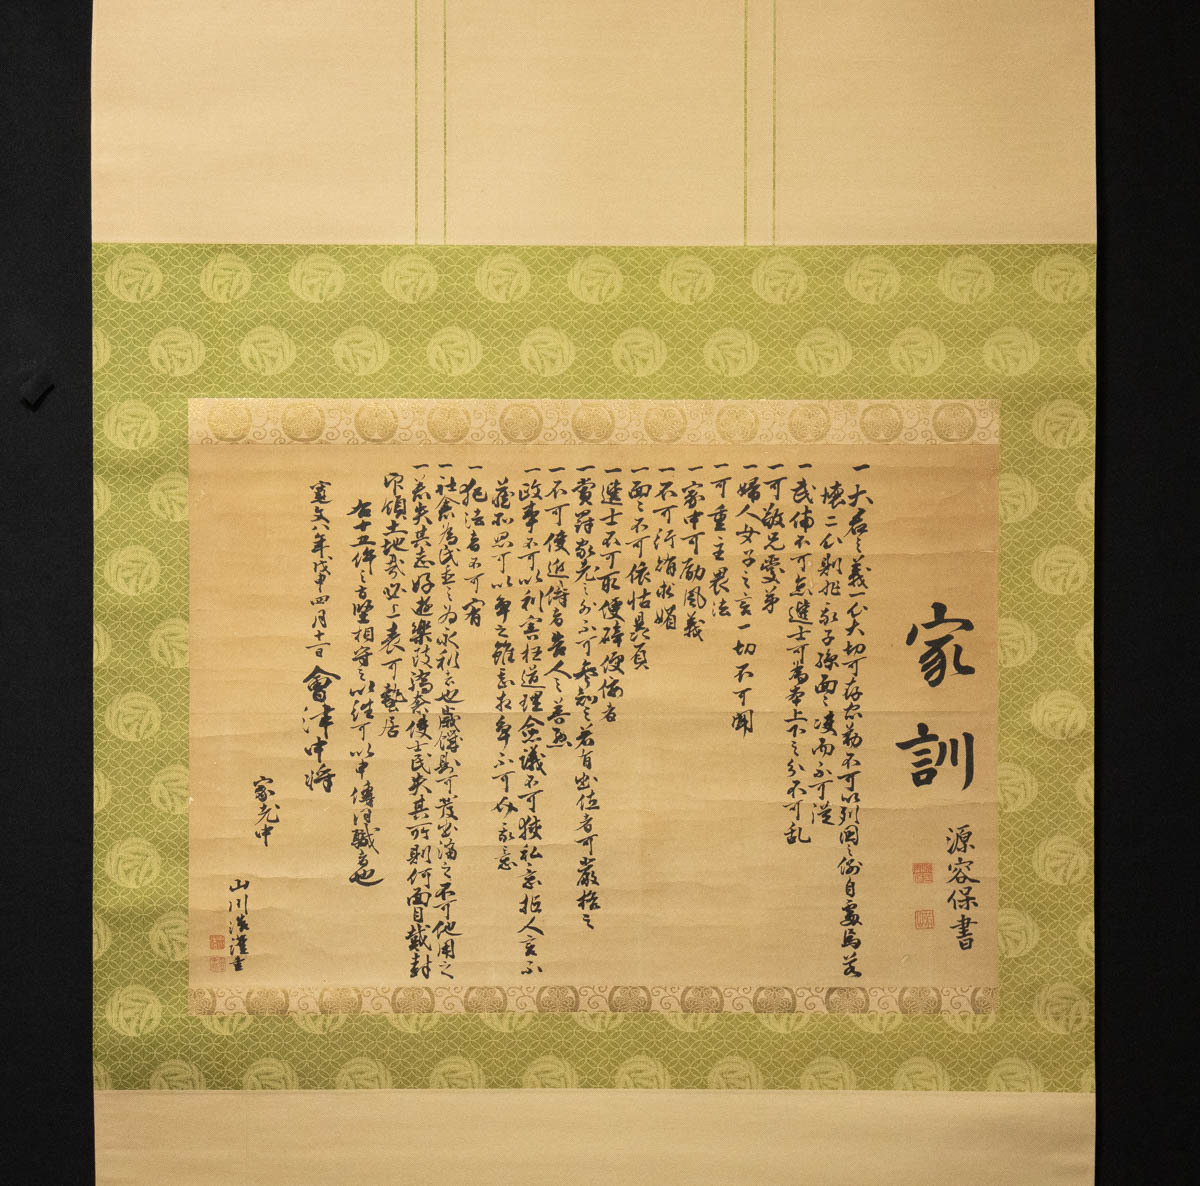 家訓
源容保書
一大君之義一心大切可存忠勤不可以列国之例自處焉若
懐二心則非我子孫面々決而不可従
一武備不可怠選士可為本上下之分不可乱
一可敬兄愛弟
一婦人女子之言一切不可聞
一可重主畏法
一家中可励風義
一不可行賄求媚
一面々不可依怙贔屓
一選士不可取便辟便侫者
一賞罸家老之外不可令知之若有出位者可厳格之
一不可使近侍者告人之善悪
一政事不可以利害枉道理僉議不可挟私意拒人言不
蔵所思可以争之雖甚相争不可介我意
一犯法者不可宥
一社倉為民置之為永利者也歳饑則可發出済之不可他用之
一若失其志好遊楽致驕奢使士民失其所則何面目戴封
印領土地哉必上表可蟄居
右十五件之旨堅相守之以往可以申傳同職者也
寛文八年戊申四月十一日 會津中将
家老中
山川浩謹書